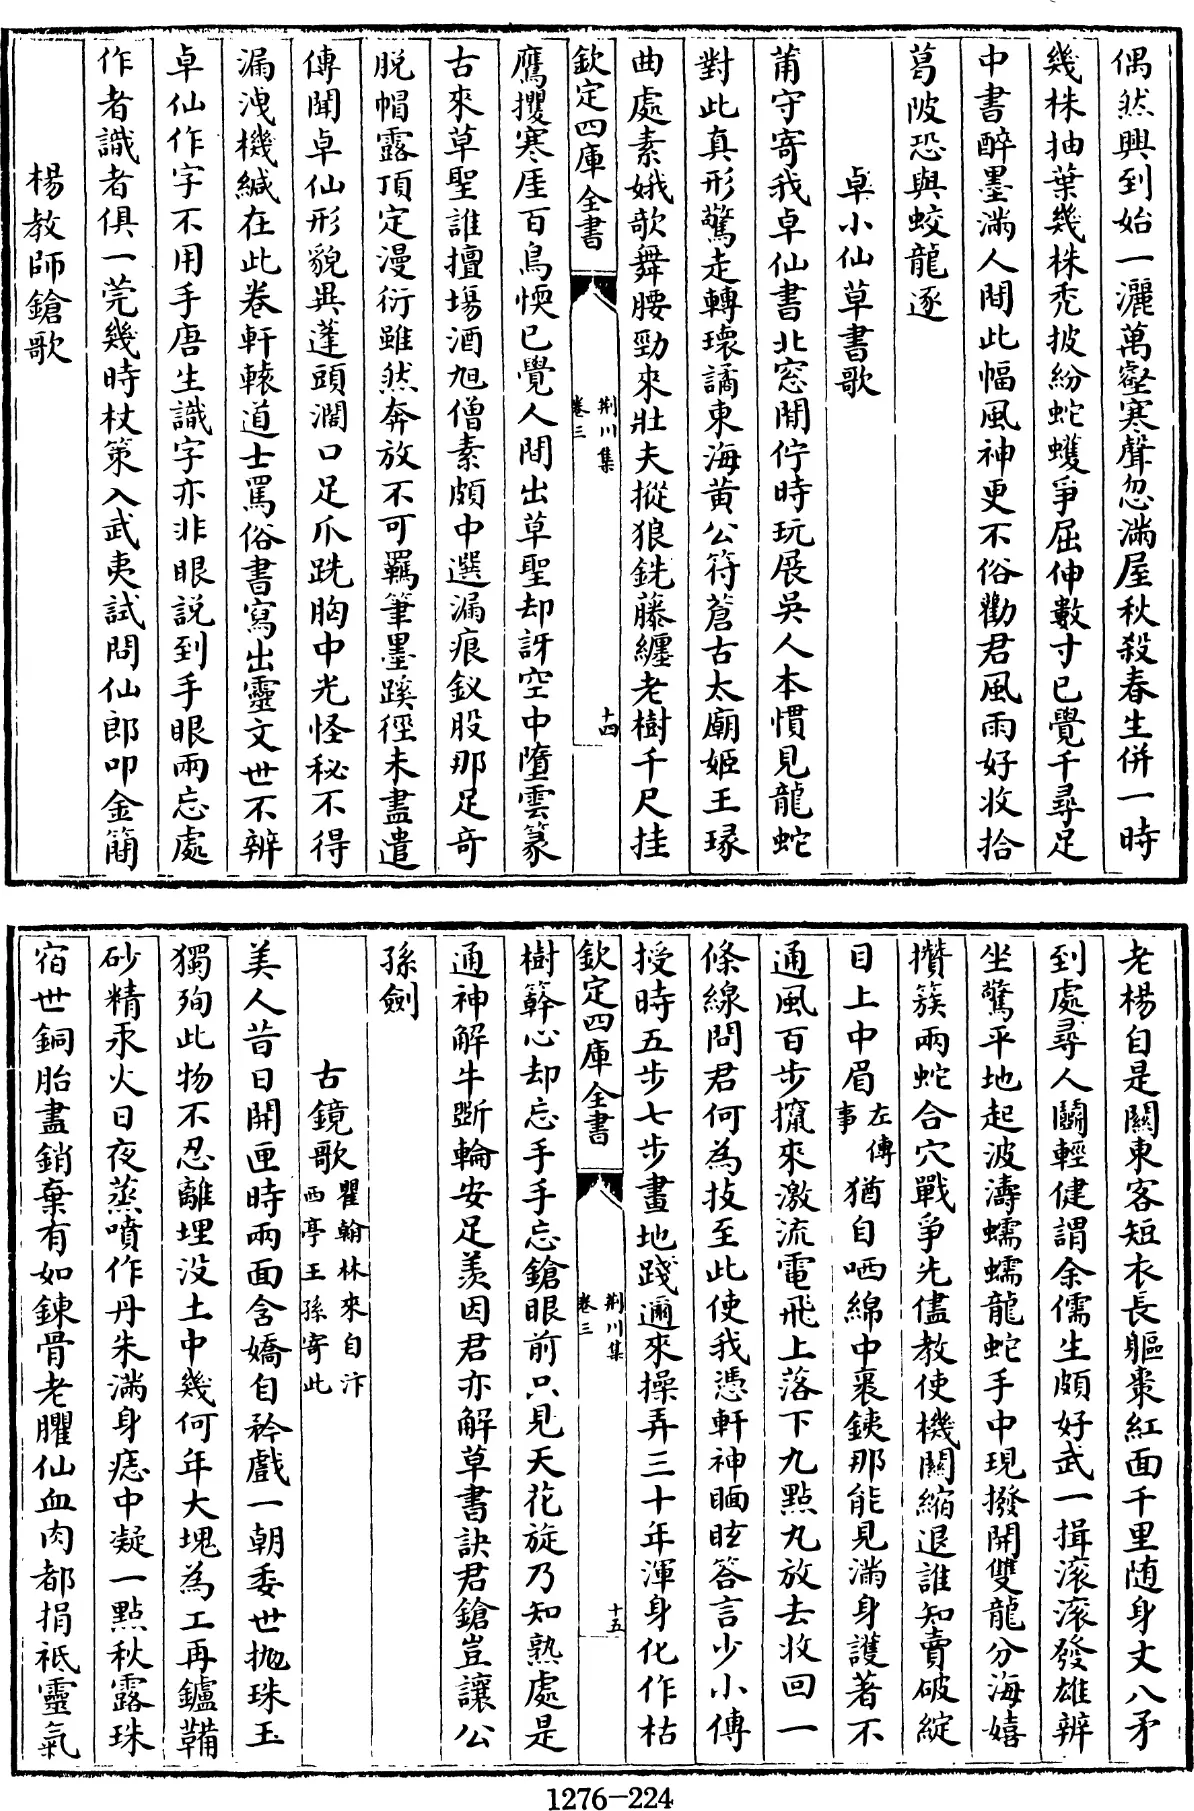 偶然興到始一灑萬壑寒聲忽滿屋秋殺春生併一時
幾株抽葉幾株禿披紛蛇蠖爭屈伸數寸已覺千尋足
中書醉墨滿人間此幅風神更不俗勸君風雨好收拾
葛陂恐與蛟龍逐
卓小仙草書歌
莆守寄我卓仙書北窓閒佇時玩展吳人本慣見龍蛇
對此真形驚走轉環譎東海黃公符蒼古太廟姬王瑑
曲處素娥歌舞腰勁來壯夫摐狼銑藤纏老樹千尺挂
欽定四庫全書
荆川集
卷三
十四
鷹攫寒厓百鳥愞已覺人間出草聖却訝空中墮雲篆
古來草聖誰擅塲酒旭僧素頗中選漏痕釵股那足奇
脱帽露頂定漫衍雖然奔放不可羈筆墨蹊徑未盡遣
傳聞卓仙形貌異蓬頭濶口足爪跣胸中光怪秘不得
漏洩機緘在此卷軒轅道士罵俗書寫出靈文世不辨
卓仙作字不用手唐生識字亦非眼說到手眼兩忘處
作者識者俱一莞幾時杖策入武夷試問仙郎叩金簡
楊教師鎗歌
老楊自是關東客短衣長軀棗紅面千里随身丈八矛
到處尋人鬭輕健謂余儒生頗好武一揖滾滾發雄辨
坐驚平地起波濤蠕蠕龍蛇手中現撥開雙龍分海嬉
攢簇兩蛇合穴戰爭先儘教使機關縮退誰知賣破綻
目上中眉左傳事猶自哂綿中裹鐵那能見滿身護著不
通風百步攛來激流電飛上落下九點丸放去收回一
條線問君何為技至此使我憑軒神瞤眩答言少小傳
授時五步七步畫地踐邇來操弄三十年渾身化作枯
欽定四庫全書
荆川集
卷三
十五
樹簳心却忘手手忘鎗眼前只見天花旋乃知熟處是
通神解牛斲輪安足羨因君亦解草書訣君鎗豈讓公
孫劍
古鏡歌瞿翰林來自汴西亭王孫寄此
美人昔日開匣時兩面含嬌自矜戲一朝委世抛珠玉
獨殉此物不忍離埋没土中幾何年大塊為工再鑪鞴
砂精汞火日夜蒸噴作丹朱滿身痣中凝一點秋露珠
宿世銅胎盡銷棄有如鍊骨老臞仙血肉都捐祗靈氣
1276-224